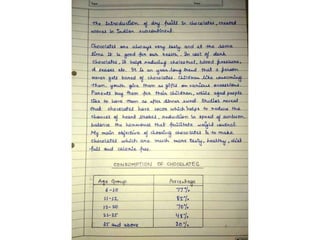 The Introduction of dry fruits in chocolates, created
waves in Indian subcontinent.
Chocolates are always very tasty and at the same
time. It is good for our health. In cost of dark
Chocolates, it helps reducing cholesterol, blood pressure,
It is an year long trend that a person
never gets bored of chocolates. Children like consuming
them, youth give them as gifts on various occasions.
Parents buy them for their children, while aged people
like to have them as after dinner sweet. Studies reveal
that chocolates have cocoa which helps to reduce the
chances of heart stroke, reduction in spread of
balance the hormones that facilitate weight control.
My main objective of choosing chocolates is to make
chocolates which are much more tasty, healthy, diet
full and calorie free.
CONSUMPTION OF CHOCOLATES
Age Group Percentage
77%
11-12 85%
12-20 70%
21-25 48%
25 and above 20%